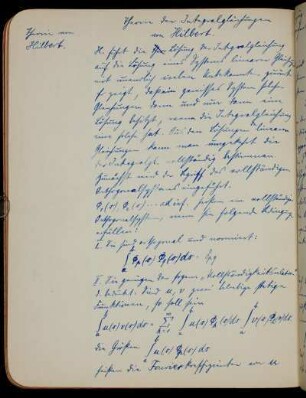 Theorie von
Hilbert.
Theorie der Integralgleichungen
von Hilbert.
H. führt die Lösung der Integralgleichung
auf die Lösung eines Systems linearer Gleich
mit unendlich vielen Unbekannten zurück
Er zeigt, daß ein gewisses System solcher
Gleichungen dann und nur dann eine
Lösung besitzt, wenn die Integralgleichung
eine solche hat. Aus den Lösungen linearer
Gleichungen kann man umgekehrt die
der Integralgl. vollständig bestimmen
Zunächst wird der Begriff des vollständigen
Orthogonalsystems eingeführt.
Φ₁(s), Φ₂(s)... ad inf. heißen ein vollständiges
Orthogonalsystem, wenn sie folgende Beding
erfüllen:
I. Sie sind orthogonal und normiert:
∫ Φp(s) Φq(s) ds = δpq
II. Sie genügen der sogen. Vollständigkeitsrelation
d. bedeutet: Sind u, v zwei beliebige stetige
Funktionen, so soll sein
∫ u(s) v(s) ds = Σ ∫ u(s) Φp(s) ds ∫ v(s) Φp(s) ds
die Größen ∫ u(s) Φp(s) ds
heißen die Fourierkoeffizienten von u